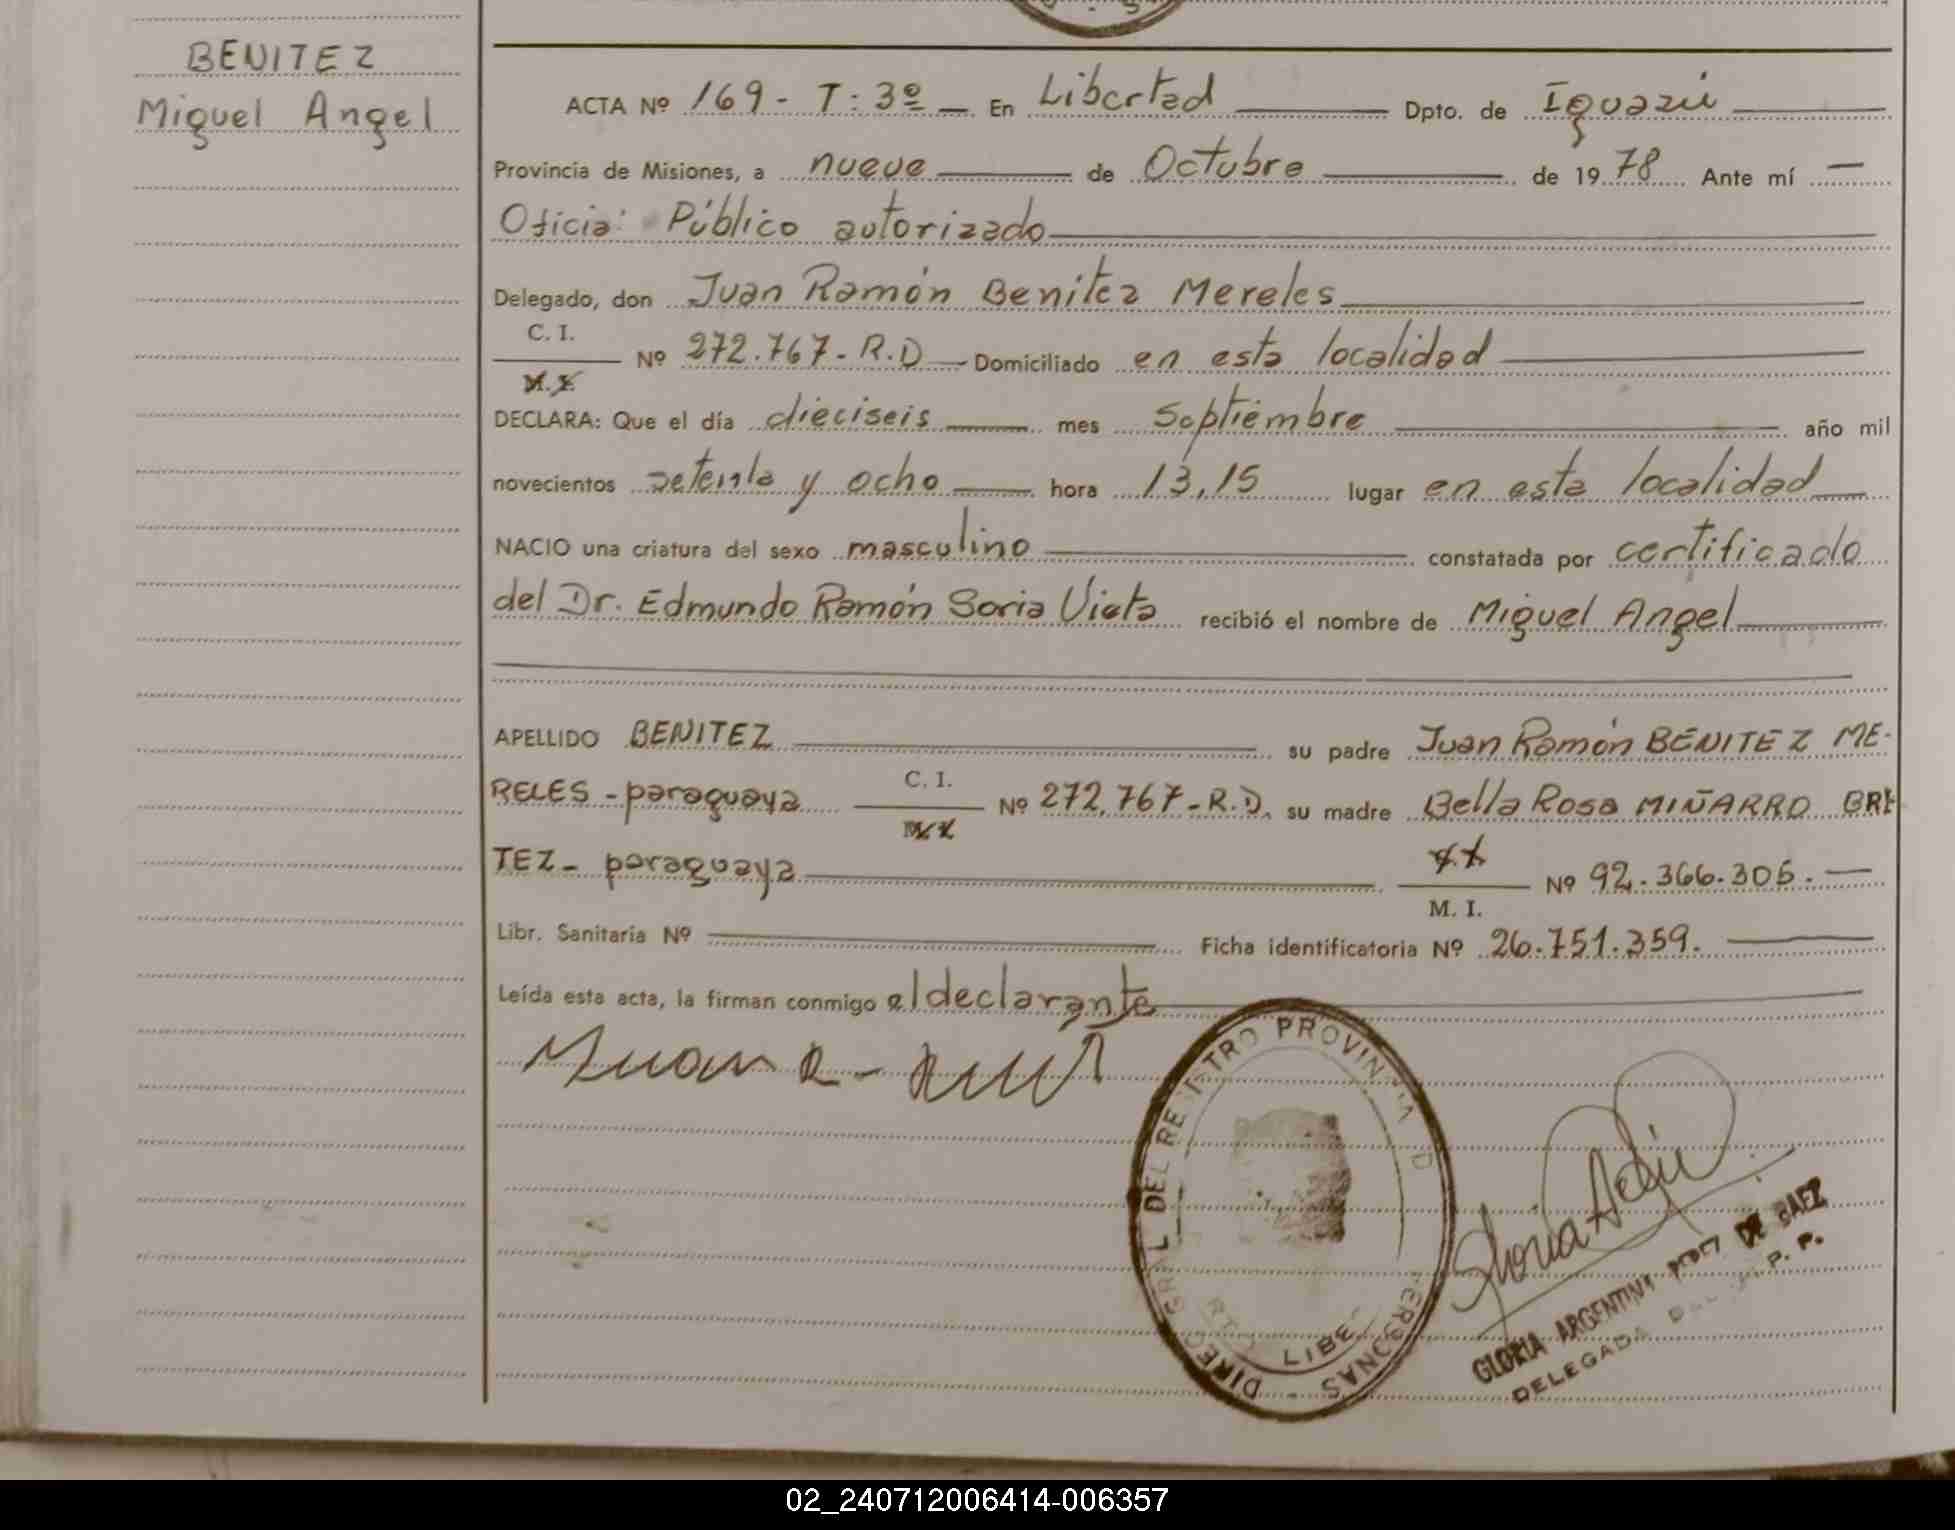 BENITEZ
Miguel Angel
ACTA Nº 169 - T: 3º En Libertad Dpto. de Iguazú
Provincia de Misiones, a nueve de Octubre de 1978 Ante mí
Oficial Público autorizado
Delegado, don Juan Ramón Benitez Mereles
C. I.
Nº 272.767-R.D Domiciliado en esta localidad
DECLARA: Que el día dieciseis mes Septiembre año mil
novecientos setenta y ocho hora 13,15 lugar en esta localidad
NACIO una criatura del sexo masculino constatada por certificado
del Dr. Edmundo Ramón Soria Vieta recibió el nombre de Miguel Angel
APELLIDO BENITEZ su padre Juan Ramón BENITEZ ME-
RELES - paraguaya C. I. Nº 272.767-R.D. su madre Bella Rosa MIÑARRO
TEZ - paraguaya M. I. Nº 92.366.305.
Libr. Sanitaria Nº Ficha identificatoria Nº 26.751.359.
Leída esta acta, la firman conmigo el declarante
Juan R.
DEL REGISTRO PROVINCIAL
PERSONAS
Gloria
GLORIA ARGENTINA DE BAEZ
DELEGADA
02_240712006414-006357